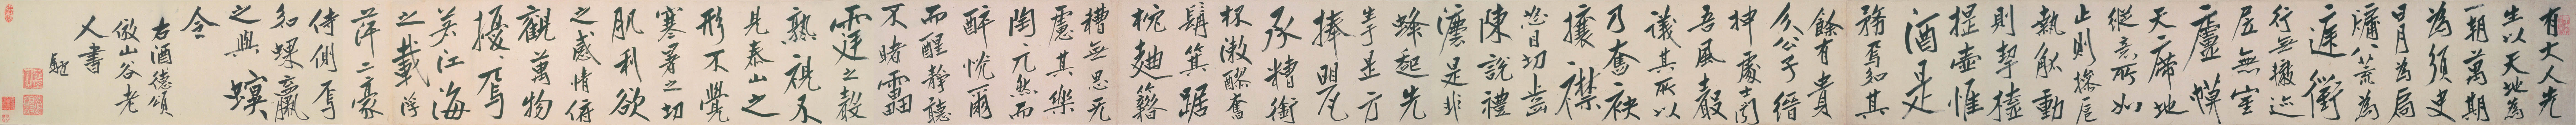 有大人先
生以天地為
一朝萬期
為須臾
日月為扃
牖八荒為
庭衢
行無轍迹
居無室
廬幕
天席地
縱意所如
止則操巵
執觚動
則挈榼
提壺惟
酒是
務焉知其
餘有貴
介公子縉
紳處士聞
吾風聲
議其所以
乃奮袂
攘襟
怒目切齒
陳說禮
灋是非
蜂起先
生是方
捧甖
承糟銜
杯漱醪奮
髯箕踞
枕麴籍
糟無思无
慮其樂
陶兀然而
醉恍爾
而醒靜聽
不睹雷
霆之聲
熟視不
見泰山之
形不覺
寒暑之切
肌利欲
之感情俯
觀萬物
擾擾焉
若江海
之載浮
萍二豪
侍側焉
如蜾蠃
之與螟
令
右酒德頌
倣山谷老
人書